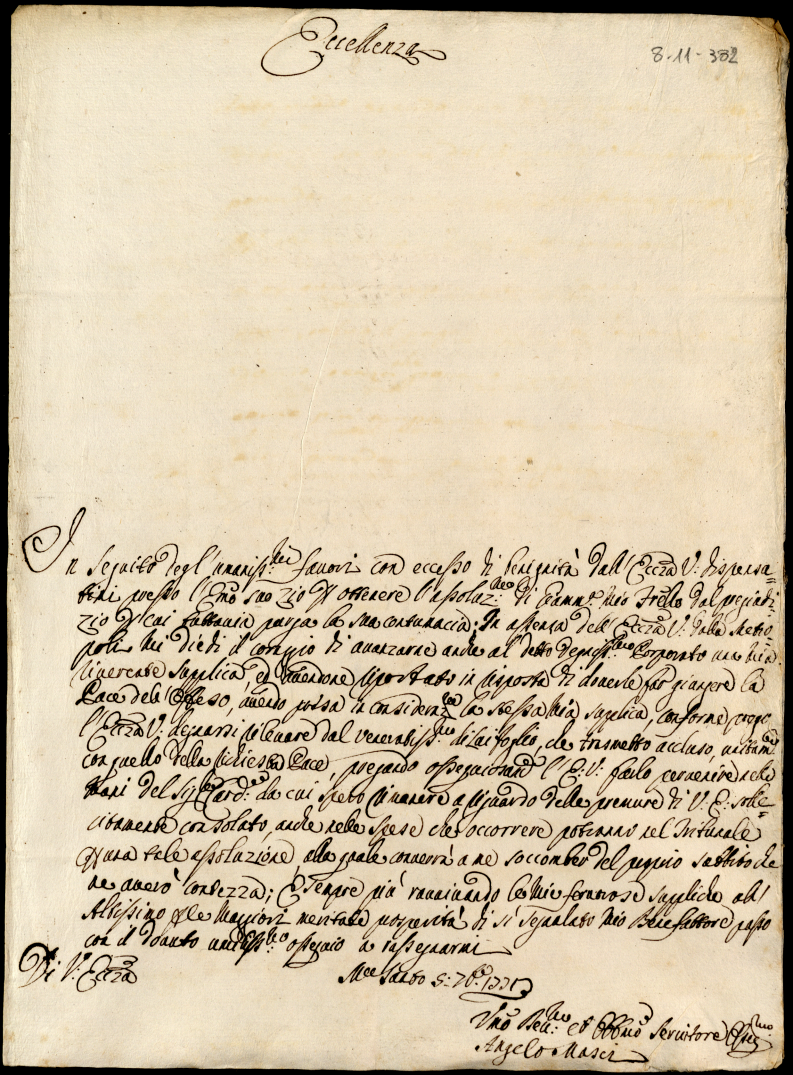 Eccellenza
8-11-382
In Seguito degl'umaniss:mi favori con eccesso di benignità dall'Eccza V: dispensa=
timi presso l'Emo suo Zio p ottenere l'assoluz:ne di mio Frello dal pregiudi=
zio di cui tuttavia purga la sua contumacia; In assenza dell'Eccza V: dalla Metro
poli mi diedi il coraggio di avanzarne anche al detto Degniss:mo Porporato una mia
riverente Supplica, ed avendone riportato in risposta di doverle far giungere la
Pace dell'Offeso, avendo presa in consideraz:ne la stessa mia Supplica, conforme
l'Eccza V: degnarsi rilevare dal venerabiss:mo di lui foglio, che trasmetto accluso, unitamte
con quello della richiesta Pace, pregando ossequiosamte l'E: V: farlo pervenire nelle
mani del Sigr Card:e da cui spero rimanere a riguardo delle premure di V: E: solle=
citamente consolato, anche nelle spese che occorrere potranno nel Tribunale
p una tale assoluzione, alla quale converrà a me soccomber del proprio subbito che
ne averò contezza; E sempre più ravvivando le mie fervorose suppliche all'
Altissimo p le Maggiori meritate prosperità di sì Segnalato mio Benefattore, passo
con il dovuto umiliss:mo ossequio a rassegnarmi
Di V: Eccza
Mte Santo 5: 7bre 1771
Umo Dev:mo et Obbmo Servitore
Angelo Masci